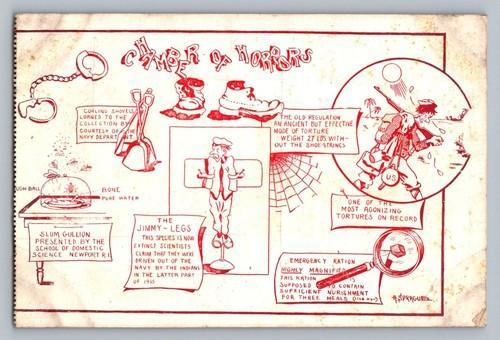 CHAMBER OF HORRORS
COALING SHOVELS
LOANED TO THE
COLLECTION BY
COURTESY OF THE
NAVY DEPARTMENT
THE OLD REGULATION
AN ANCIENT BUT EFFECTIVE
MODE OF TORTURE
WEIGHT 27 LBS WITH-
OUT THE SHOE STRINGS
US
ONE OF THE
MOST AGONIZING
TORTURES ON RECORD
BALL
BONE
PURE WATER
SLUM GULLION
PRESENTED BY THE
SCHOOL OF DOMESTIC
SCIENCE NEWPORT R.I.
THE
JIMMY-LEGS
THIS SPECIES IS NOW
EXTINCT SCIENTISTS
CLAIM THAT THEY WERE
DRIVEN OUT OF THE
NAVY BY THE INDIANS
IN THE LATTER PART
OF
EMERGENCY RATION
HIGHLY MAGNIFIED
THIS RATION IS
SUPPOSED TO CONTAIN
SUFFICIENT NURISHMENT
FOR THREE MEALS
SPRAGUE